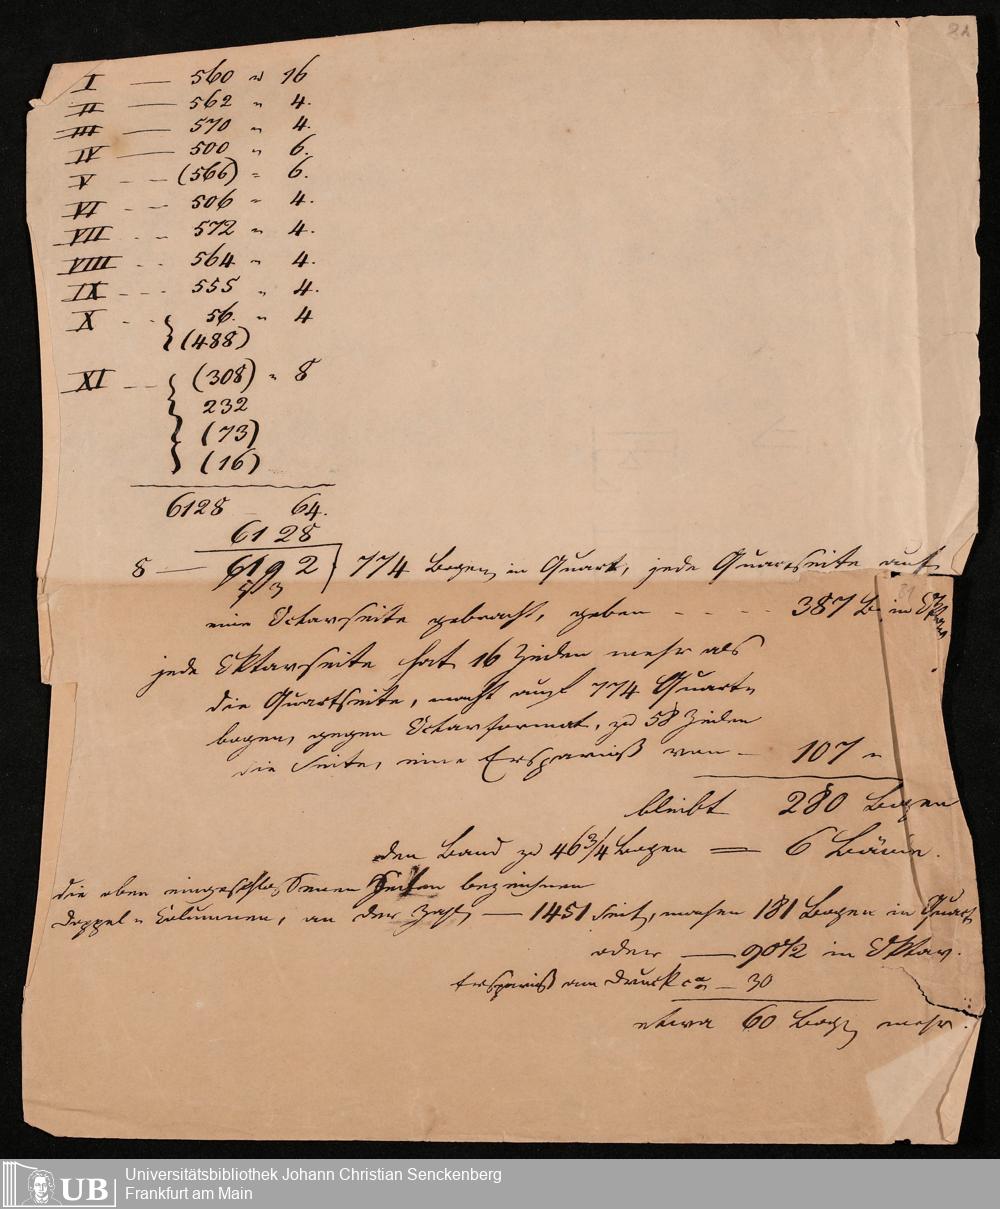 I — 560 u 16
II — 562 " 4.
III — 570 " 4.
IV — 500 " 6.
V - - — (566) " 6.
VI - - 506 " 4.
VII - - 572 " 4.
VIII - - 564 " 4.
IX - - - 555 " 4.
X - - 56. " 4
(488)
XI - - (308) " 8
232
(73)
(16)
6128 — 64.
6128
8 — 6192 | 774 Bogen in Quart, jede Quartseite auf
59
3
eine Octavseite gebracht, geben - - - - - 387 B. in Oktav
jede Oktavseite hat 16 Zeilen mehr als
die Quartseite, macht auf 774 Quart-
bogen, gegen Octavformat, zu 58 Zeilen
die Seite, eine Ersparniß von — 107 "
bleibt 280 Bogen
den Band zu 46 3/4 Bogen = 6 Bände.
die oben eingeschlossenen Seiten bezeichnen
Doppel-Columnen, an der Zahl — 1451 Seit, machen 181 Bogen in Quart
oder — 90 1/2 in Oktav.
Ersparniß am Druck ca — 30
etwa 60 Bog mehr.
21
81
UB
Universitätsbibliothek Johann Christian Senckenberg
Frankfurt am Main